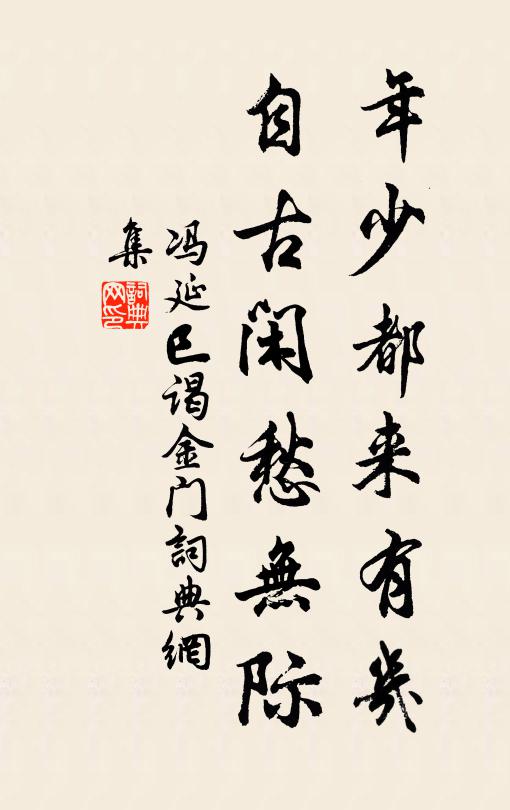 年少都来有幾
自古闲愁無际
冯延巳谒金门詞典網
集
詞典
网印